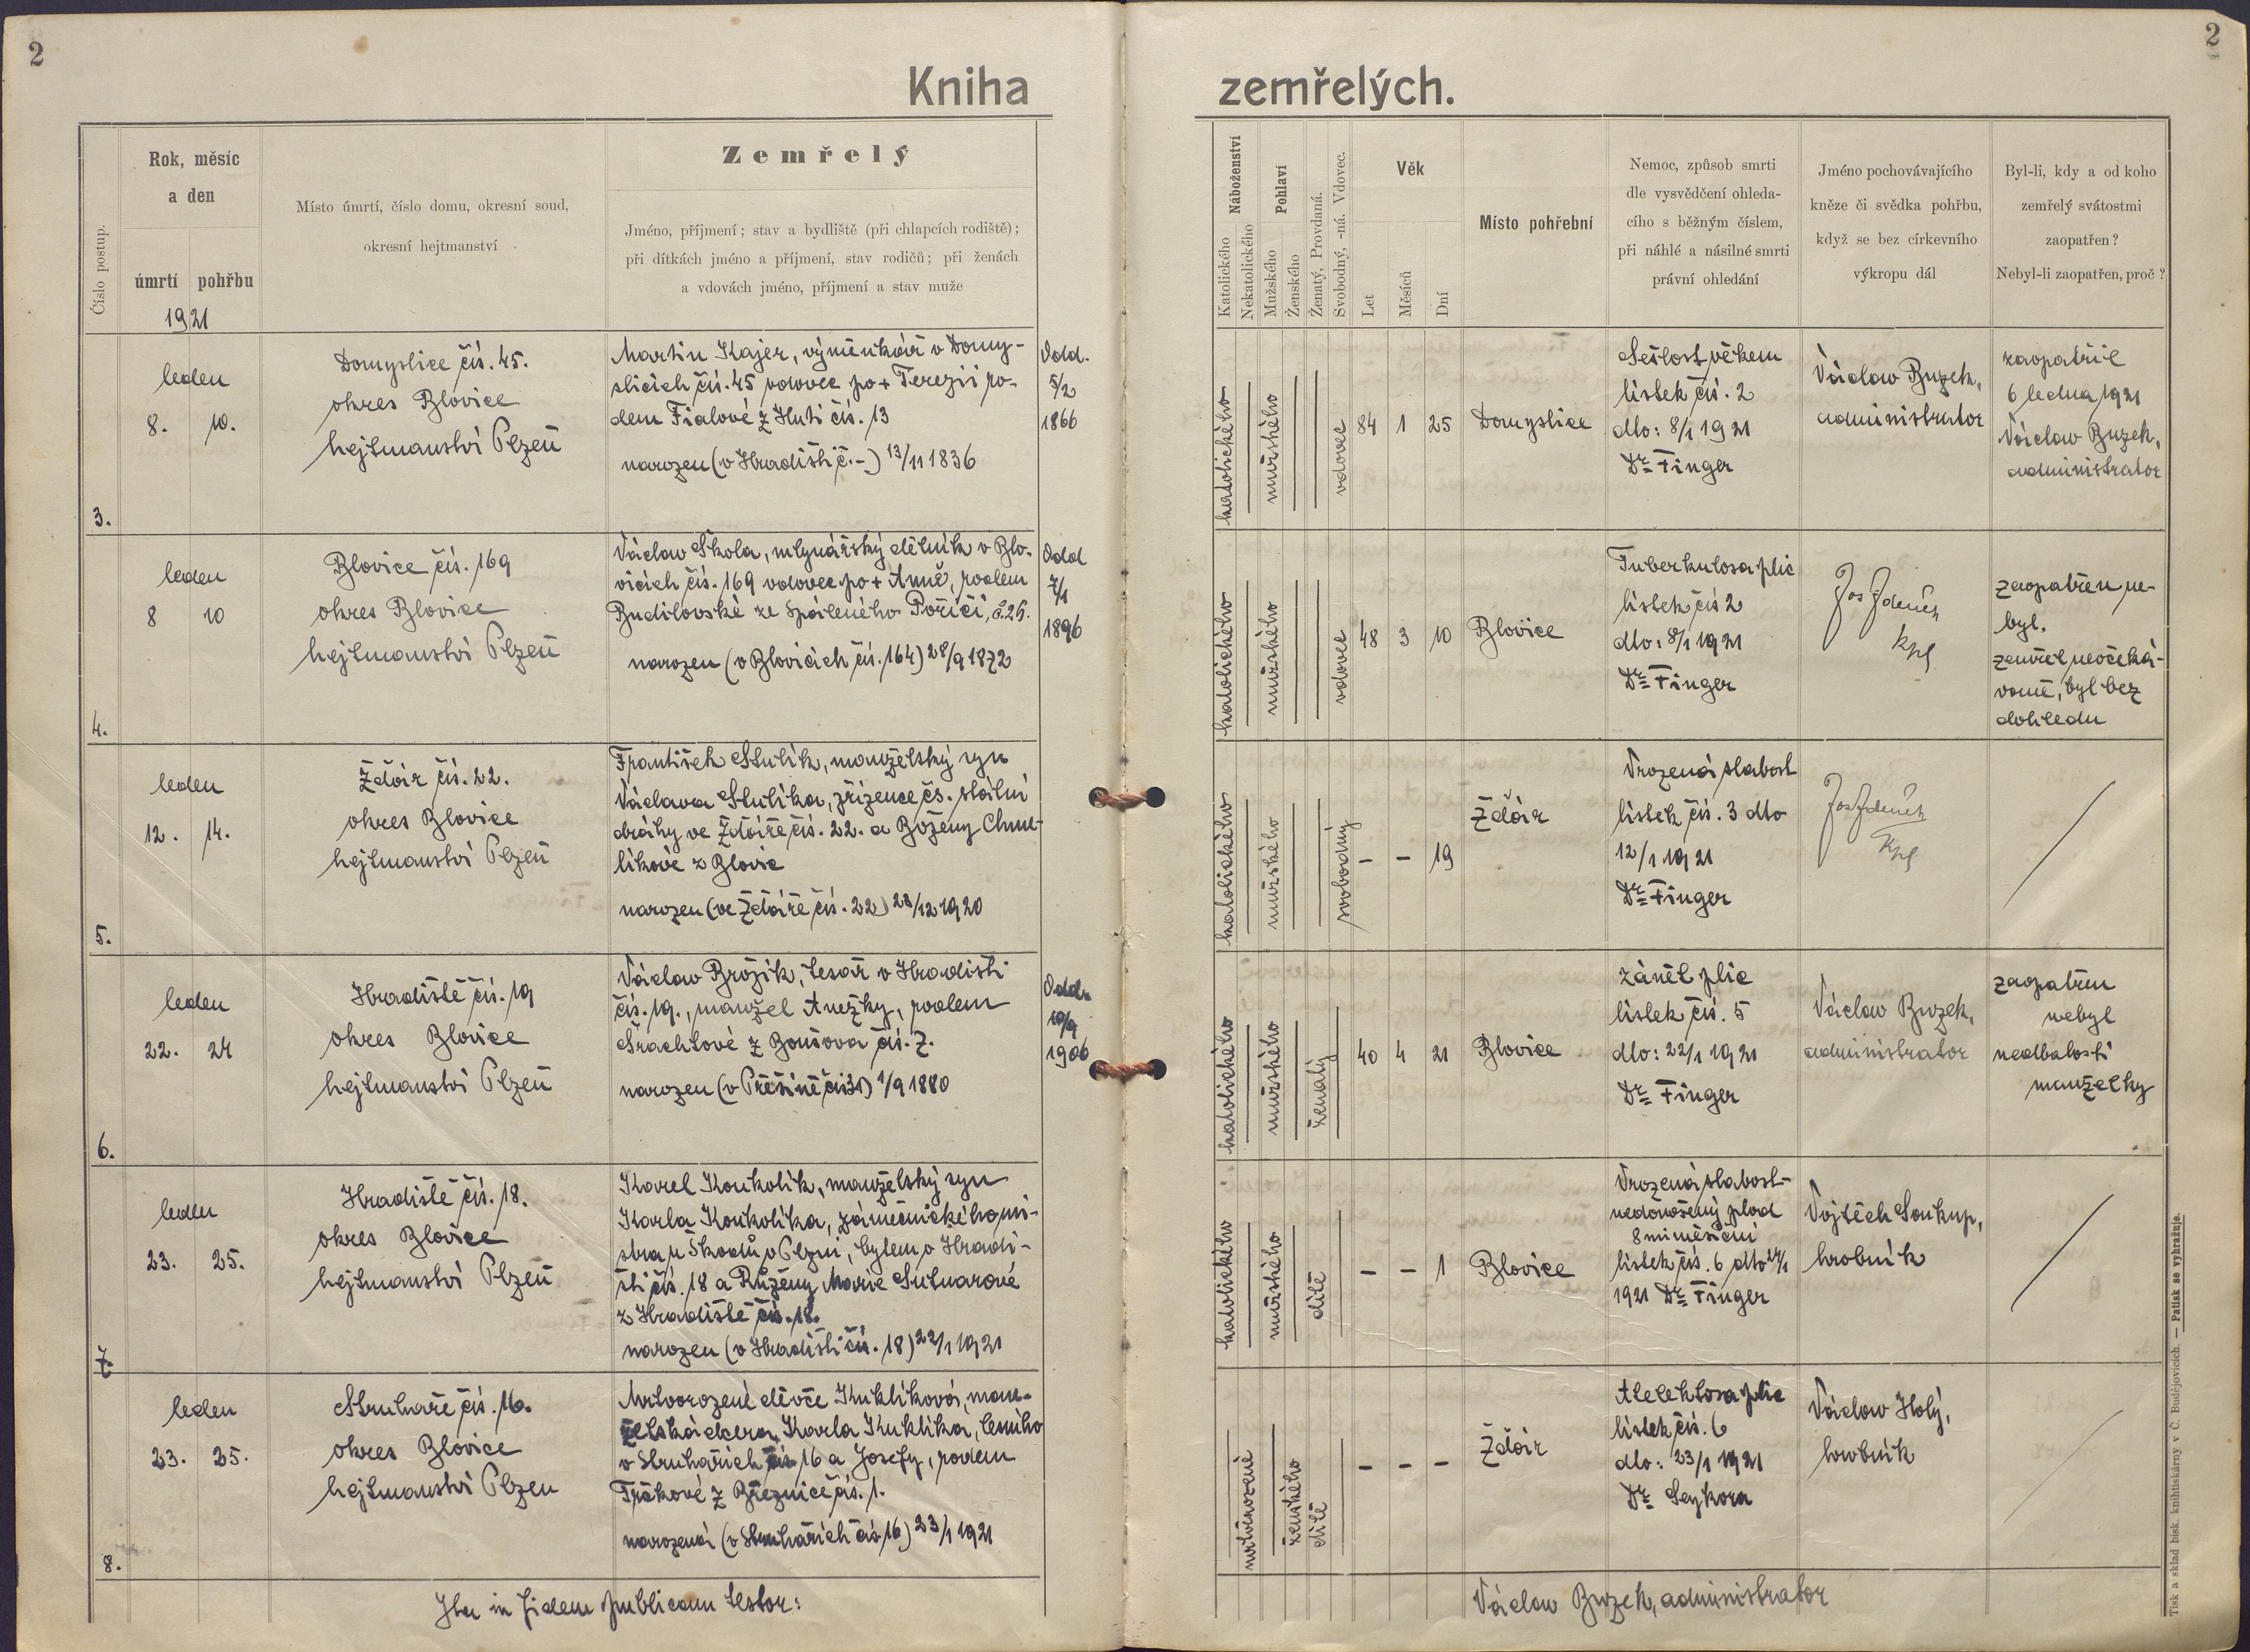 2
2
Kniha zemřelých.
Číslo postup.
Rok, měsíc
a den
úmrtí pohřbu
1921
Místo úmrtí, číslo domu, okresní soud,
okresní hejtmanství
Zemřelý
Jméno, příjmení; stav a bydliště (při chlapcích rodiště);
při dítkách jméno a příjmení, stav rodičů; při ženách
a vdovách jméno, příjmení a stav muže
Náboženství
Katolického
Nekatolického
Pohlaví
Mužského
Ženského
Ženatý, Provdaná.
Svobodný, -ná. Vdovec.
Věk
Let
Měsíců
Dní
Místo pohřební
Nemoc, způsob smrti
dle vysvědčení ohleda-
cího s běžným číslem,
při náhlé a násilné smrti
právní ohledání
Jméno pochovávajícího
kněze či svědka pohřbu,
když se bez církevního
výkropu dál
Byl-li, kdy a od koho
zemřelý svátostmi
zaopatřen?
Nebyl-li zaopatřen, proč?
3.
leden
8. 10.
Domyslice čís. 45.
okres Blovice
hejtmanství Plzeň
Martin Kajer, výměnkář v Domy-
slicích čís. 45 vdovec po + Terezii ro-
dem Fialové z Huti čís. 13
narozen (v Hradišti č. -) 13/11 1836
Odd.
5/2
1866
katolického
mužského
vdovec
84 1 25
Domyslice
Sešlost věkem
lístek čís. 2
dto: 8/1 1921
Dr. Finger
Václav Buzek,
administrator
zaopatřil
6 ledna 1921
Václav Buzek,
administrator
4.
leden
8 10
Blovice čís. 169
okres Blovice
hejtmanství Plzeň
Václav Škola, mlynářský dělník v Blo-
vicích čís. 169 vdovec po + Anně, rodem
Budilovské ze Spáleného Poříčí, č. 26.
narozen (v Blovicích čís. 164) 28/9 1872
Odd
7/1
1896
katolického
mužského
vdovec
48 3 10
Blovice
Tuberkulosa plic
lístek čís 2
dto: 8/1 1921
Dr. Finger
Jos Zdeněk
kpl
zaopatřen ne-
byl.
zemřel neočeká-
vaně, byl bez
dohledu
5.
leden
12. 14.
Ždár čís. 22.
okres Blovice
hejtmanství Plzeň
František Stulík, manželský syn
Václava Stulíka, zřízence čs. státní
dráhy ve Ždáře čís. 22. a Boženy Chme-
líkové z Blovic
narozen (ve Ždáře čís. 22) 23/12 1920
katolického
mužského
svobodný
- - 19
Ždár
Vrozená slabost
lístek čís. 3 dto
12/1 1921
Dr. Finger
Jos Zdeněk
kpl
6.
leden
22. 24
Hradiště čís. 19
okres Blovice
hejtmanství Plzeň
Václav Brožík, tesař v Hradišti
čís. 19., manžel Anežky, rodem
Šrachtové z Boušova čís. 7.
narozen (v Přešíně čís 31) 1/9 1880
Odd.
10/9
1906
katolického
mužského
ženatý
40 4 21
Blovice
zánět plic
lístek čís. 5
dto: 22/1 1921
Dr. Finger
Václav Buzek,
administrator
zaopatřen
nebyl
nedbalostí
manželky
7.
leden
23. 25.
Hradiště čís. 18.
okres Blovice
hejtmanství Plzeň
Karel Koukolík, manželský syn
Karla Koukolíka, zámečnického mi-
stra u Škodů v Plzni, bytem v Hradi-
šti čís. 18 a Růženy Marie Sutnarové
z Hradiště čís. 18.
narozen (v Hradišti čís. 18) 22/1 1921
katolického
mužského
dítě
- - 1
Blovice
Vrozená slabost-
nedonošený plod
8 mi měsíční
lístek čís. 6 dto 24/1
1921 Dr. Finger
Vojtěch Soukup,
hrobník
8.
leden
23. 25.
Struhaře čís. 16.
okres Blovice
hejtmanství Plzen
Mrtvorozené děvče Kuklíková, man-
želská dcera Karla Kuklíka, lesního
v Struhařích čís 16 a Josefy, rodem
Trčkové z Březnice čís. 1.
narozená (v Struhařích čís 16) 23/1 1921
mrtvěrozené
ženského
dítě
- - -
Ždár
Atelektosa plic
lístek čís. 6
dto: 23/1 1921
Dr. Seykora
Václav Holý,
hrobník
Ita in fidem publicam testor:
Václav Buzek, administrator
Tisk a sklad bisk. knihtiskárny v Č. Budějovicích. — Patisk se vyhražuje.